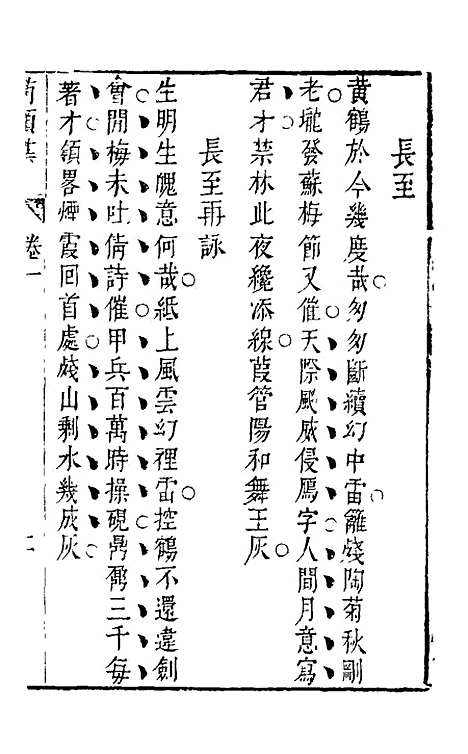 長至
黃鶴於今幾度哉匆匆斷續幻中雷籬殘陶菊秋剛
老壠發蘇梅節又催天際颸威侵鴈字人間月意寫
君才禁林此夜纔添線葭管陽和舞玉灰
長至再詠
生明生魄意何哉紙上風雲幻裡雷控鶴不還違劍
會開梅未吐倩詩催甲兵百萬時操硯鼎鼐三千每
著才領畧煙霞回首處殘山剩水幾成灰
卷一
二